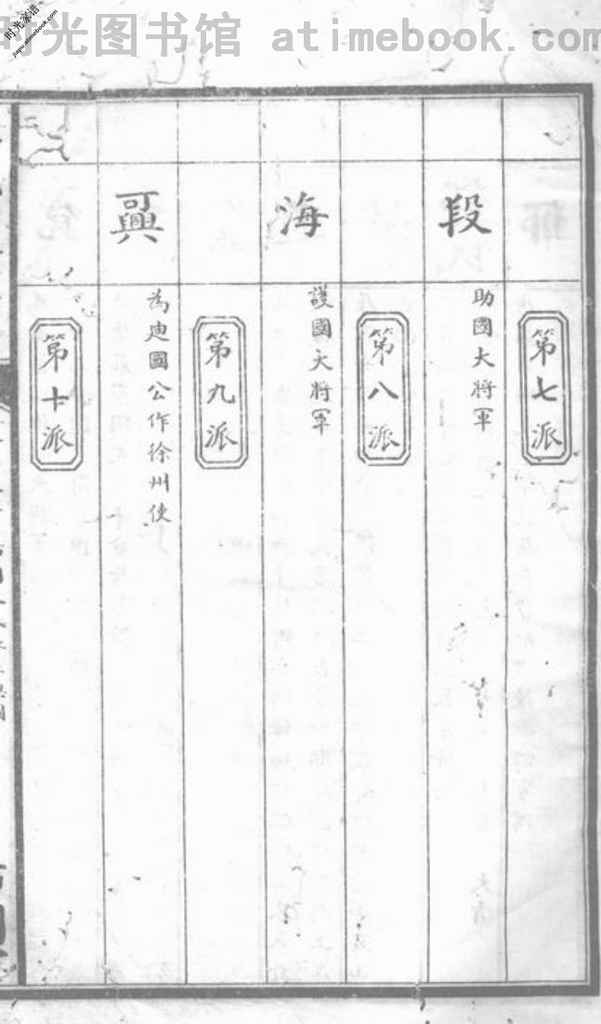 时光图书馆 atimebook.com
第七派
段
助國大將軍
第八派
海
護國大將軍
第九派
為廸國公作徐州使
第十派